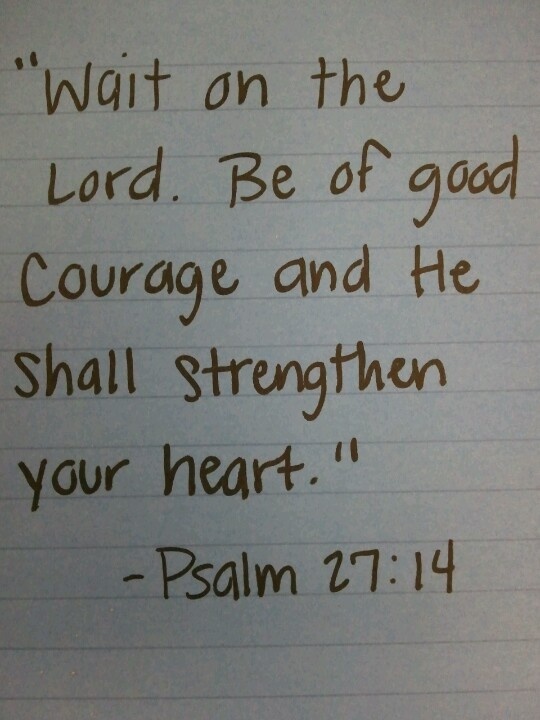 "Wait on the
Lord. Be of good
Courage and He
Shall strengthen
your heart."
- Psalm 27:14